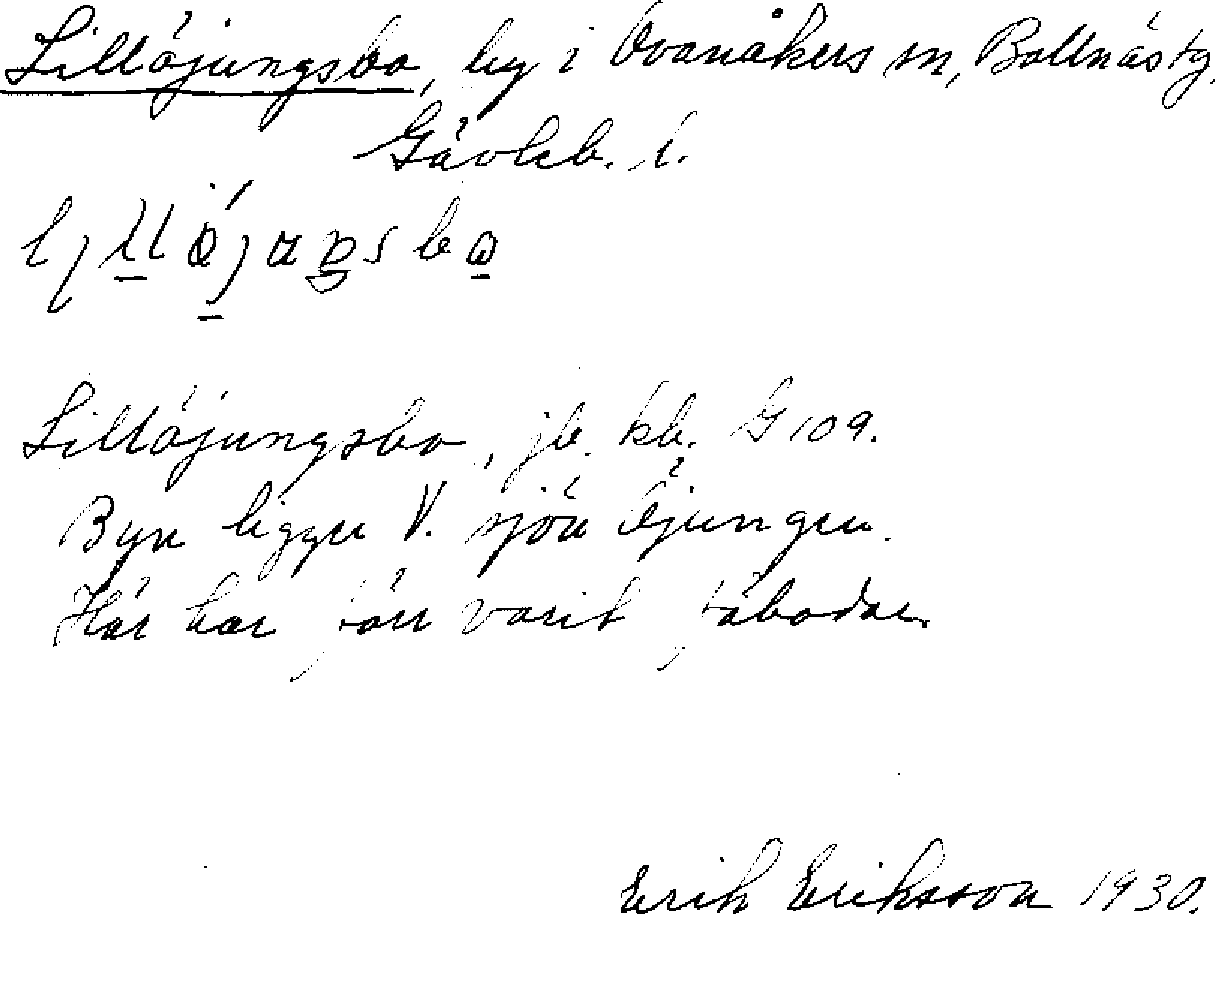 Lillöjungsbo, by i Ovanåkers sn, Bollnäs tg,
Gävleb. l.
Lillöjungsbo, jb. kb. G 109.
Byn ligger V. sjön Öjungen.
Här har förr varit fäbodar.
Erik Eriksson 1930.